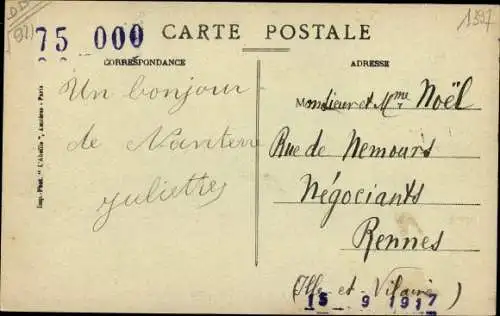 75 000
CARTE POSTALE
1597
CORRESPONDANCE
ADRESSE
Un bonjour
de Nanterre
Juliette
Monsieur et Mme Noël
Rue de Nemours
Négociants
Rennes
(Ille-et-Vilaine)
15 9 1917
Imp.-Phot. "L'Abeille", Asnières-Paris